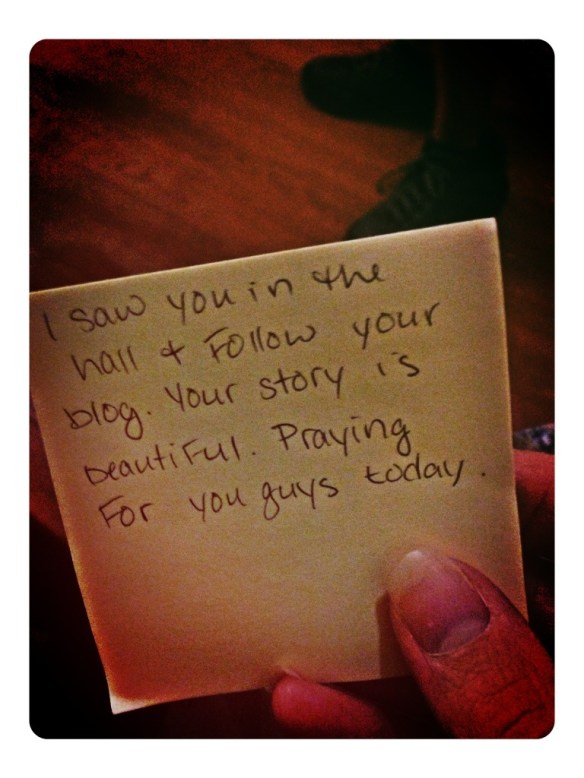 I saw you in the
hall + Follow your
blog. Your story is
beautiful. Praying
For you guys today.